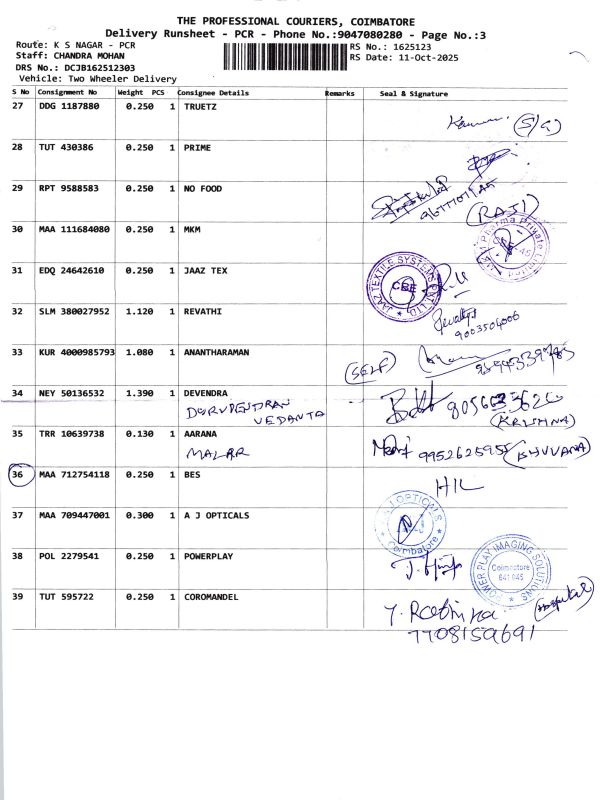 THE PROFESSIONAL COURIERS, COIMBATORE
Delivery Runsheet - PCR - Phone No.:9047080280 - Page No.:3
Route: K S NAGAR - PCR
RS No.: 1625123
Staff: CHANDRA MOHAN
RS Date: 11-Oct-2025
DRS No.: DCJB162512303
Vehicle: Two Wheeler Delivery
S No Consignment No Weight PCS Consignee Details Remarks Seal & Signature
27 DDG 1187880 0.250 1 TRUETZ
(S/G)
28 TUT 430386 0.250 1 PRIME
29 RPT 9588583 0.250 1 NO FOOD
(RAJI)
30 MAA 111684080 0.250 1 MKM
Pharma Private Limited
31 EDQ 24642610 0.250 1 JAAZ TEX
JAAZ TEXTILE SYSTEMS PVT. LTD.
CBE
32 SLM 380027952 1.120 1 REVATHI
Revathi
9003504006
33 KUR 4000985793 1.080 1 ANANTHARAMAN
(SELF)
34 NEY 50136532 1.390 1 DEVENDRA
VEDANTA
(KRISHNA)
35 TRR 10639738 0.130 1 AARANA
MALAR
9952625955 (BHUVANA)
36 MAA 712754118 0.250 1 BES
HIL
37 MAA 709447001 0.300 1 A J OPTICALS
A J OPTICALS
A J
Coimbatore
38 POL 2279541 0.250 1 POWERPLAY
POWER PLAY IMAGING SOLUTIONS
Coimbatore
641 045
39 TUT 595722 0.250 1 COROMANDEL
(Hospital)
7708159691